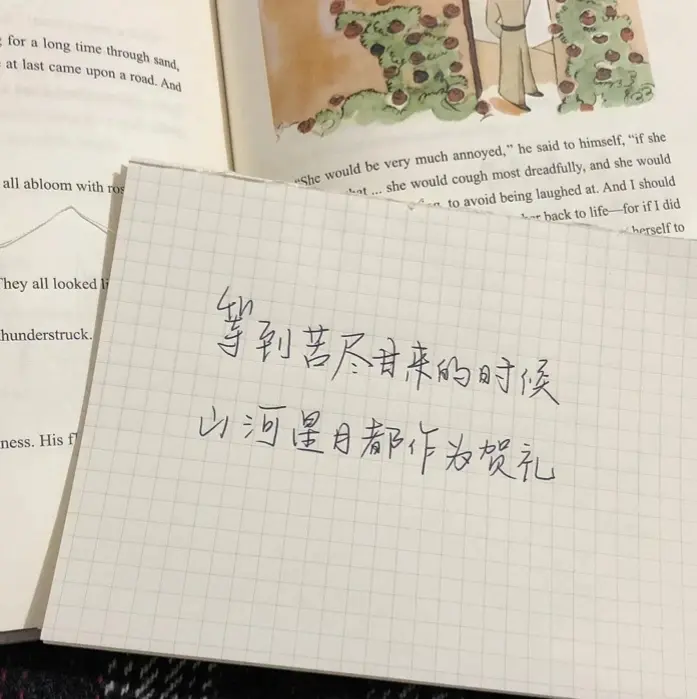 for a long time through sand,
at last came upon a road. And
all abloom with
They all looked
thunderstruck.
ness. His
“She would be very much annoyed,” he said to himself, “if she
... she would cough most dreadfully, and she would
to avoid being laughed at. And I should
back to life—for if I did
herself to
等到苦尽甘来的时候
山河星月都作为贺礼